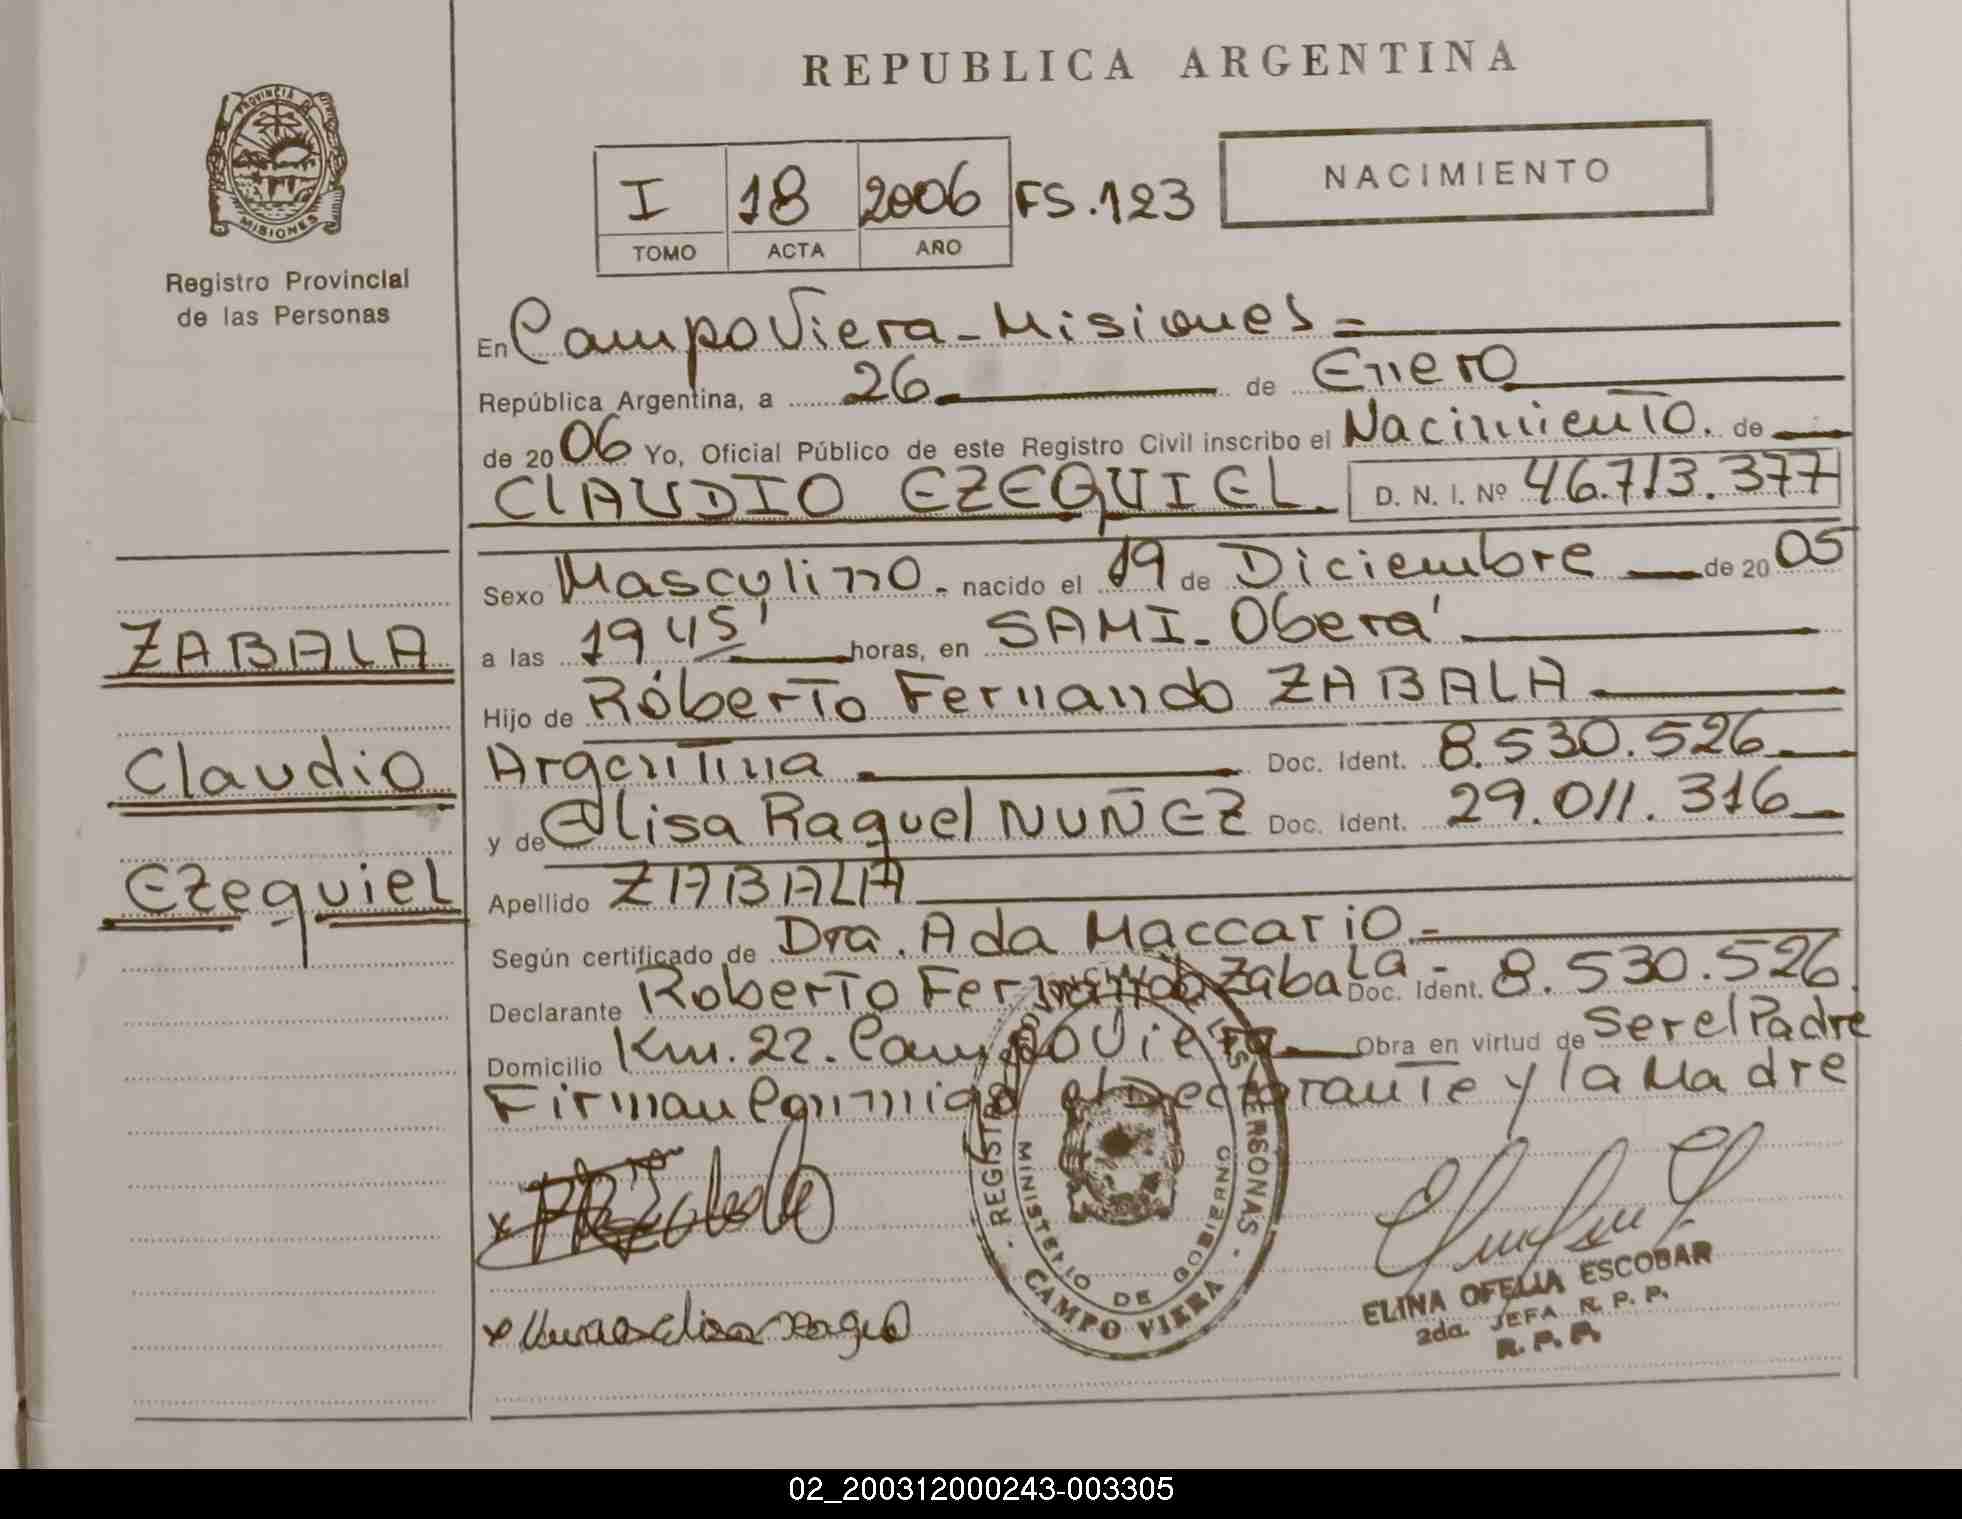 REPUBLICA ARGENTINA
PROVINCIA DE
MISIONES
Registro Provincial
de las Personas
I 18 2006 FS.123
TOMO ACTA AÑO
NACIMIENTO
En Campo Viera - Misiones =
República Argentina, a 26 de Enero
de 2006 Yo, Oficial Público de este Registro Civil inscribo el Nacimiento. de
CLAUDIO EZEQUIEL. D. N. I. Nº 46.713.377
Sexo Masculino. nacido el 19 de Diciembre de 2005
a las 19 45' horas, en SAMI - Oberá
Hijo de Róberto Fernando ZABALA
Argentina Doc. Ident. 8.530.526
y de Elisa Raquel NUÑEZ Doc. Ident. 29.011.316
Apellido ZABALA
Según certificado de Dra. Ada Maccario.-
Declarante Roberto Fernando Zabala - Doc. Ident. 8.530.526
Domicilio Km. 22. Campo Viera Obra en virtud de Ser el Padre
Firman Conmigo el Declarante y la Madre
ZABALA
Claudio
Ezequiel
MINISTERIO DE GOBIERNO
CAMPO VIERA
ELINA OFELIA ESCOBAR
2da. JEFA R. P. P.
R. P. P.
02_200312000243-003305